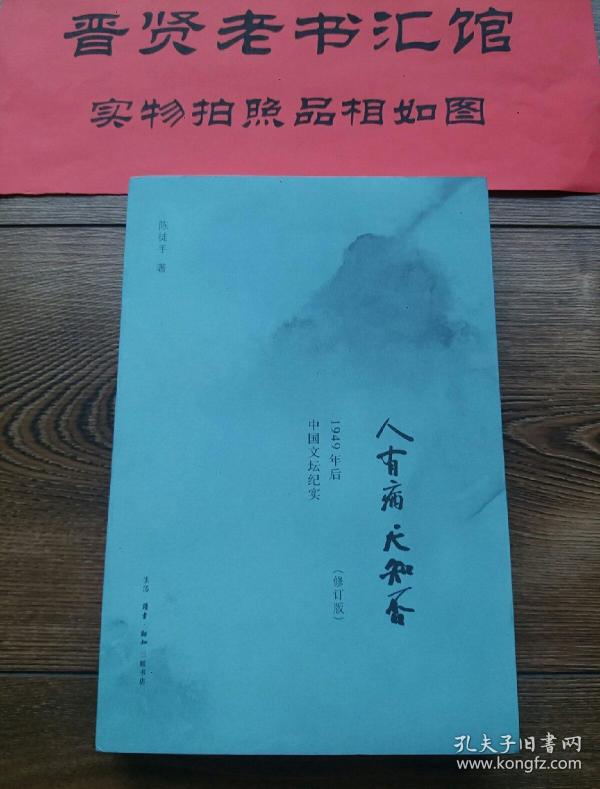 晋贤老书汇馆
实物拍照品相如图
陈徒手 著
人有病 天知否
1949年后
中国文坛纪实
（修订版）
生活·讀書·新知 三联书店
孔夫子旧書网
www.kongfz.com